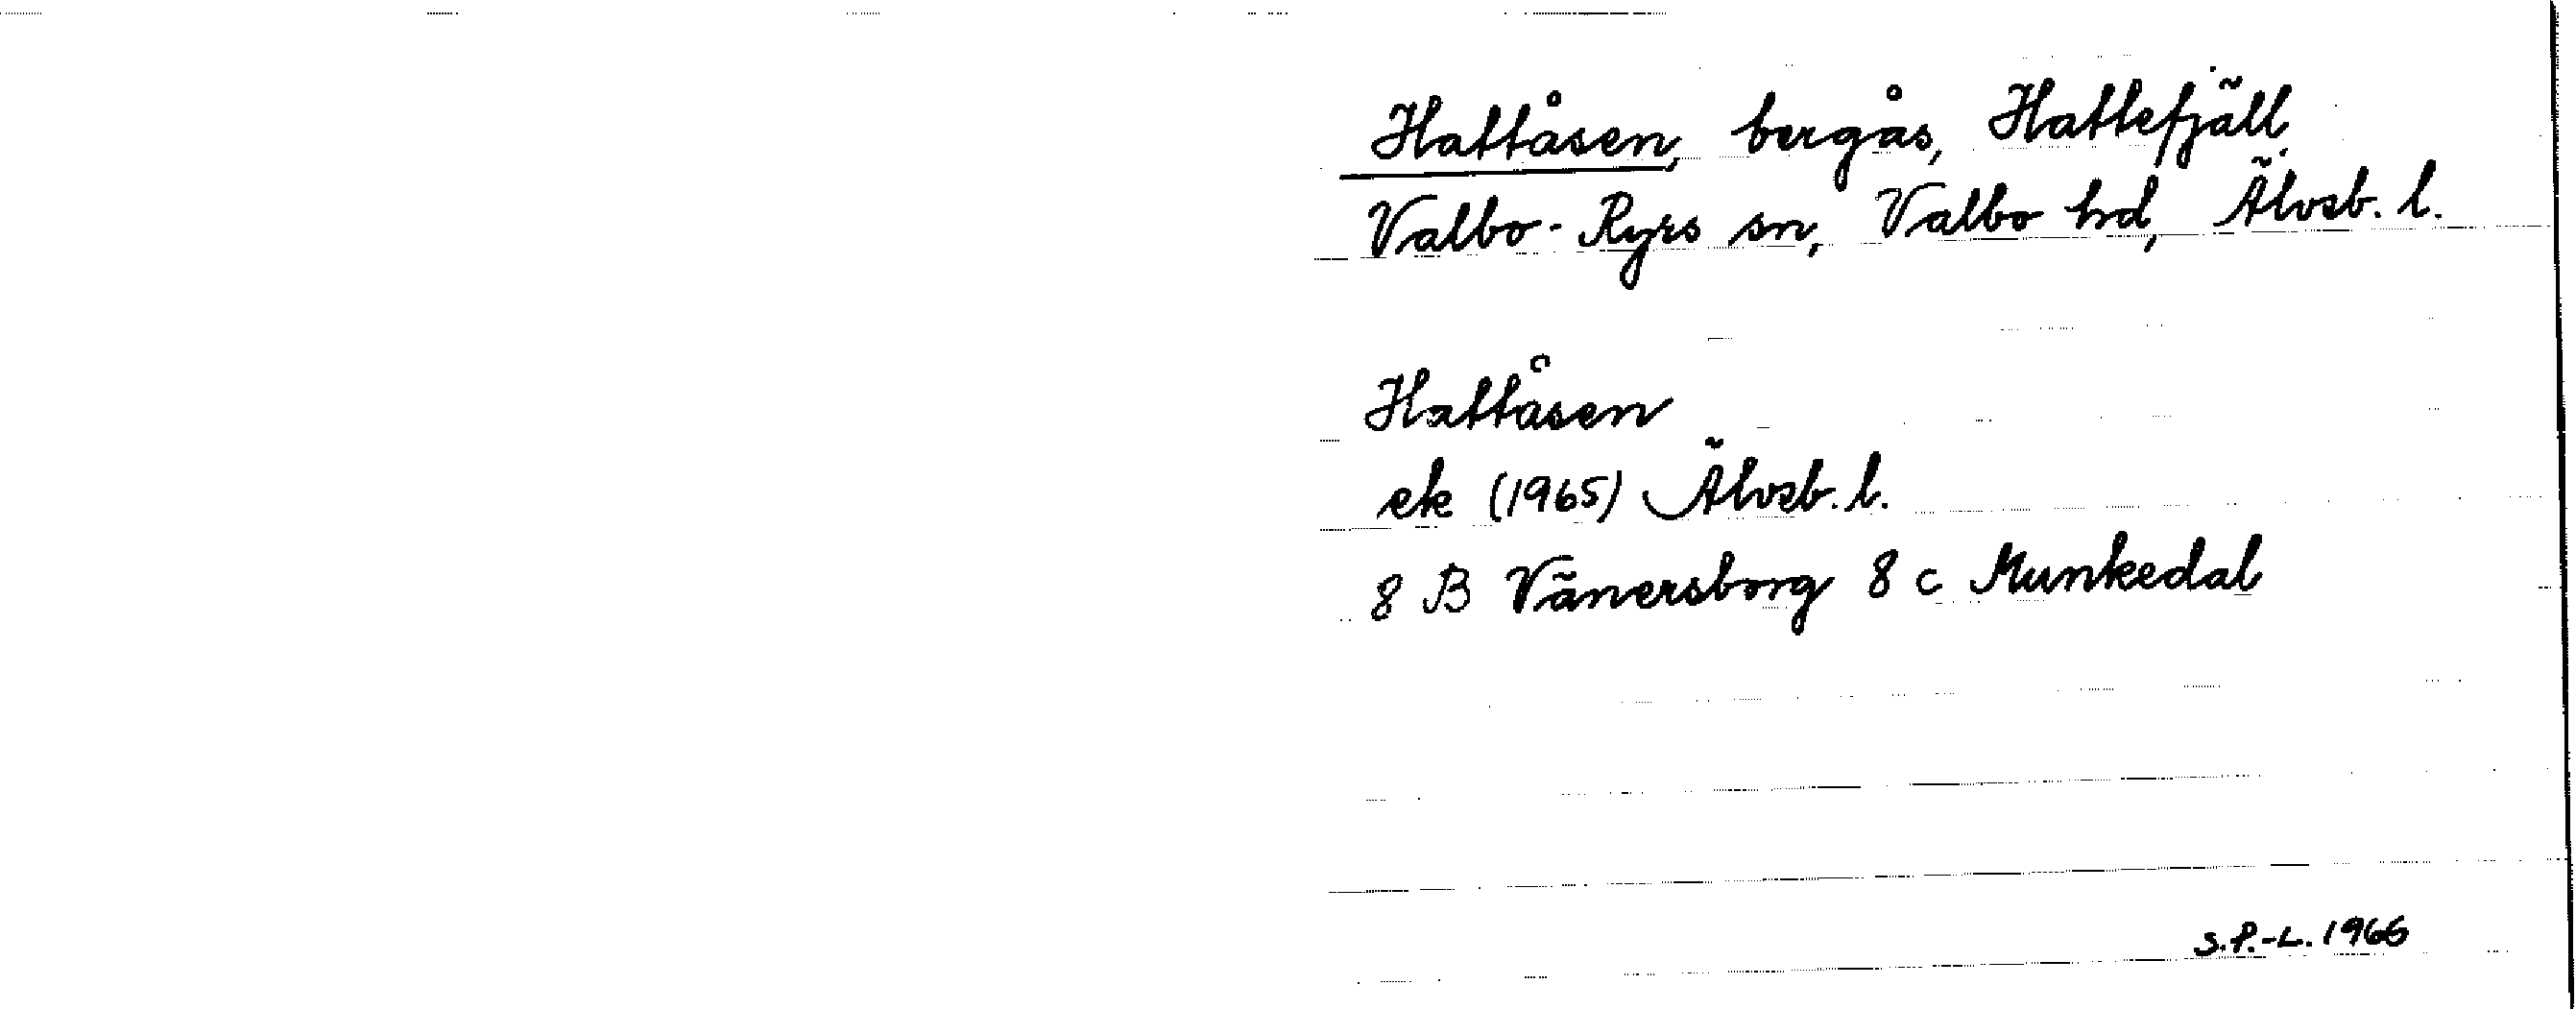 Hattåsen, bergås, Hattefjäll,
Valbo-Ryrs sn, Valbo hd, Älvsb. l.
Hattåsen
ek (1965) Älvsb. l.
8 B Vänersborg 8 c Munkedal
S.P.-L. 1966